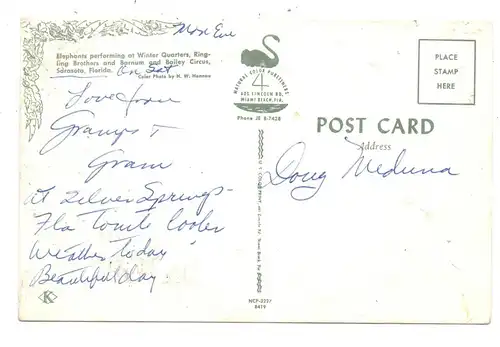 Mon Eve
Elephants performing at Winter Quarters, Ring-
ling Brothers and Barnum and Bailey Circus,
Sarasota, Florida. On Sat
Color Photo by H. W. Hannau
Love from
Gramps &
Gram
At Silver Springs-
Fla Tonite Cooler
Weather Today
Beautiful day.
K
NATURAL COLOR PUBLISHERS
4
405 LINCOLN RD.
MIAMI BEACH, FLA.
Phone JE 8-7428
NCP-2227
8419
PLACE
STAMP
HERE
POST CARD
Address
Doug Meduna